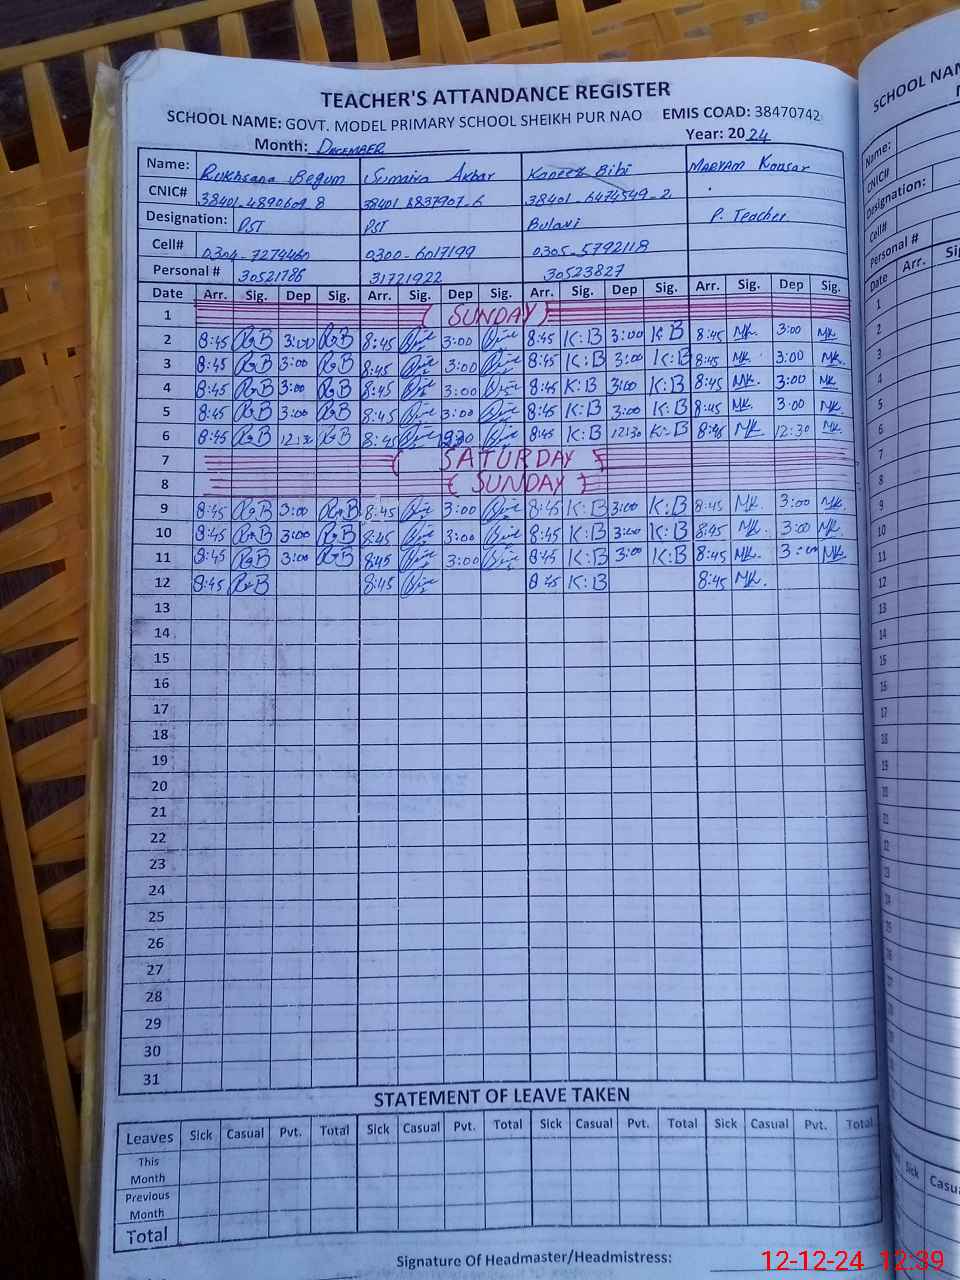 TEACHER'S ATTANDANCE REGISTER
SCHOOL NAME: GOVT. MODEL PRIMARY SCHOOL SHEIKH PUR NAO EMIS COAD: 38470742
Month: DECEMBER Year: 2024
Name: Rukhsana Begum Sumaira Akbar Kaneez Bibi MARYAM Kousar
CNIC# 38401-4890609-8 38401-8837907-6 38401-6474549-2
Designation: PST PST Bulavi P. Teacher
Cell# 0304-7274460 0300-6017199 0305-5792118
Personal # 30521786 31721922 30523827
Date Arr. Sig. Dep Sig. Arr. Sig. Dep Sig. Arr. Sig. Dep Sig. Arr. Sig. Dep Sig.
1 (SUNDAY)
2 8:45 RB 3:00 RB 8:45 3:00 8:45 K:B 3:00 K:B 8:45 MK. 3:00 MK.
3 8:45 RB 3:00 RB 8:45 3:00 8:45 K:B 3:00 K:B 8:45 MK. 3:00 MK.
4 8:45 RB 3:00 RB 8:45 3:00 8:45 K:B 3:00 K:B 8:45 MK. 3:00 MK.
5 8:45 RB 3:00 RB 8:45 3:00 8:45 K:B 3:00 K:B 8:45 MK. 3:00 MK.
6 8:45 RB 12:30 RB 8:45 8:45 K:B 12:30 K:B 8:45 MK. 12:30 MK.
7 (SATURDAY)
8 (SUNDAY)
9 8:45 RB 3:00 RB 8:45 3:00 8:45 K:B 3:00 K:B 8:45 MK. 3:00 MK.
10 8:45 RB 3:00 RB 8:45 3:00 8:45 K:B 3:00 K:B 8:45 MK. 3:00 MK.
11 8:45 RB 3:00 RB 8:45 3:00 8:45 K:B 3:00 K:B 8:45 MK. 3:00 MK.
12 8:45 RB 8:45 8:45 K:B 8:45 MK.
13
14
15
16
17
18
19
20
21
22
23
24
25
26
27
28
29
30
31
STATEMENT OF LEAVE TAKEN
Leaves Sick Casual Pvt. Total Sick Casual Pvt. Total Sick Casual Pvt. Total Sick Casual Pvt. Total
This
Month
Previous
Month
Total
Signature Of Headmaster/Headmistress:
12-12-24 12:39
SCHOOL NAM
Name:
CNIC#
Designation:
Cell#
Personal #
Date Arr. Sig
1
2
3
4
5
6
7
8
9
10
11
12
13
14
15
16
17
18
19
20
21
22
23
24
25
26
27
28
Sick Casu